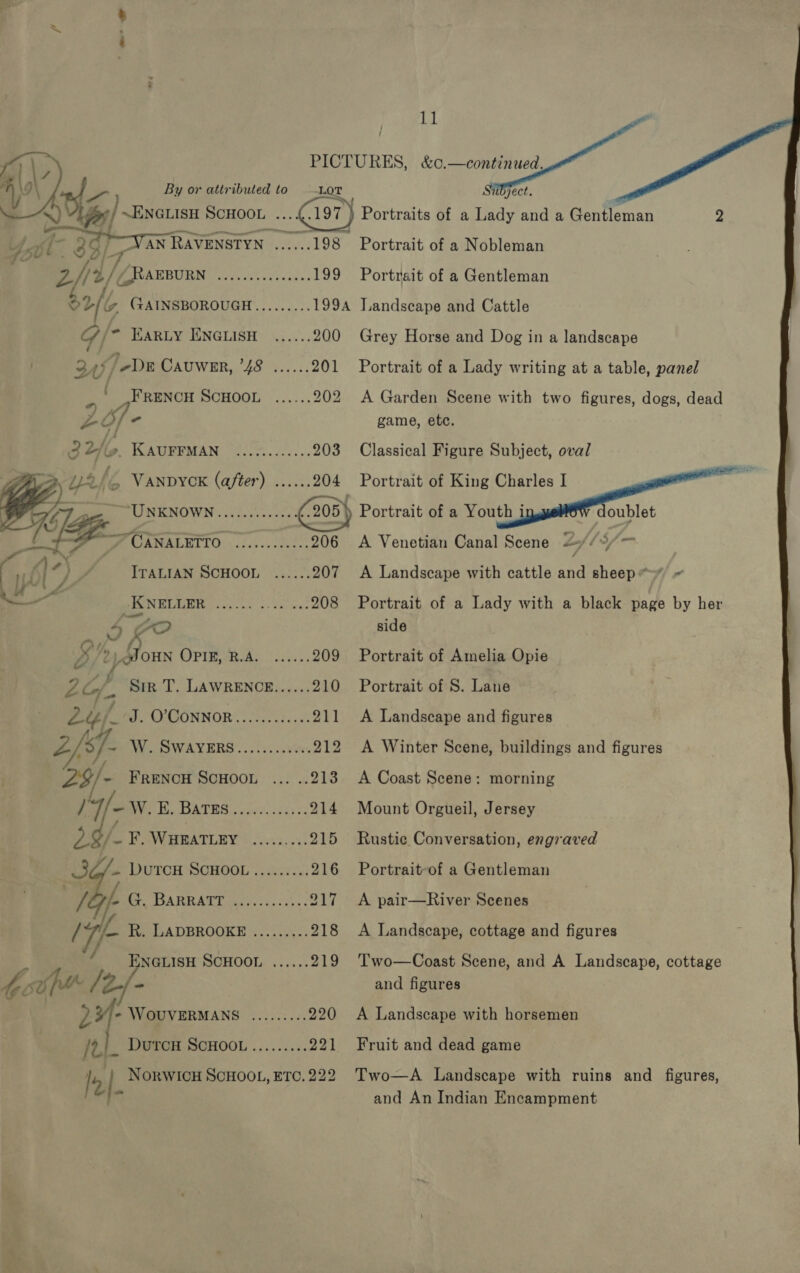 11
PICTURES, &c.—continued.
By or attributed to LOT Subject.
ENGLISH SCHOOL ... 197 Portraits of a Lady and a Gentleman 2
VAN RAVENSTYN ......198 Portrait of a Nobleman
RAEBURN ...............199 Portrait of a Gentleman
GAINSBOROUGH.........199A Landscape and Cattle
EARLY ENGLISH ......200 Grey Horse and Dog in a landscape
DE CAUWER, '48 ......201 Portrait of a Lady writing at a table, panel
FRENCH SCHOOL ......202 A Garden Scene with two figures, dogs, dead
game, etc.
KAUFFMAN ............203 Classical Figure Subject, oval
VANDYCK (after) ......204 Portrait of King Charles I
UNKNOWN............205 Portrait of a Youth in yellow doublet
CANALETTO ............206 A Venetian Canal Scene
ITALIAN SCHOOL ......207 A Landscape with cattle and sheep
KNELLER ...... ... ...208 Portrait of a Lady with a black page by her
side
JOHN OPIE, R.A. ......209 Portrait of Amelia Opie
SIR T. LAWRENCE......210 Portrait of S. Lane
J. O'CONNOR............211 A Landscape and figures
W. SWAYERS............212 A Winter Scene, buildings and figures
28/- FRENCH SCHOOL ... ..213 A Coast Scene: morning
W. E. BATES............214 Mount Orgueil, Jersey
28/- F. WHEATLEY .........215 Rustic Conversation, engraved
DUTCH SCHOOL.........216 Portrait of a Gentleman
G. BARRATT ............217 A pair—River Scenes
R. LADBROOKE .........218 A Landscape, cottage and figures
ENGLISH SCHOOL ......219 Two—Coast Scene, and A Landscape, cottage
and figures
WOUVERMANS .........220 A Landscape with horsemen
DUTCH SCHOOL.........221 Fruit and dead game
NORWICH SCHOOL, ETC. 222 Two—A Landscape with ruins and figures,
and An Indian Encampment